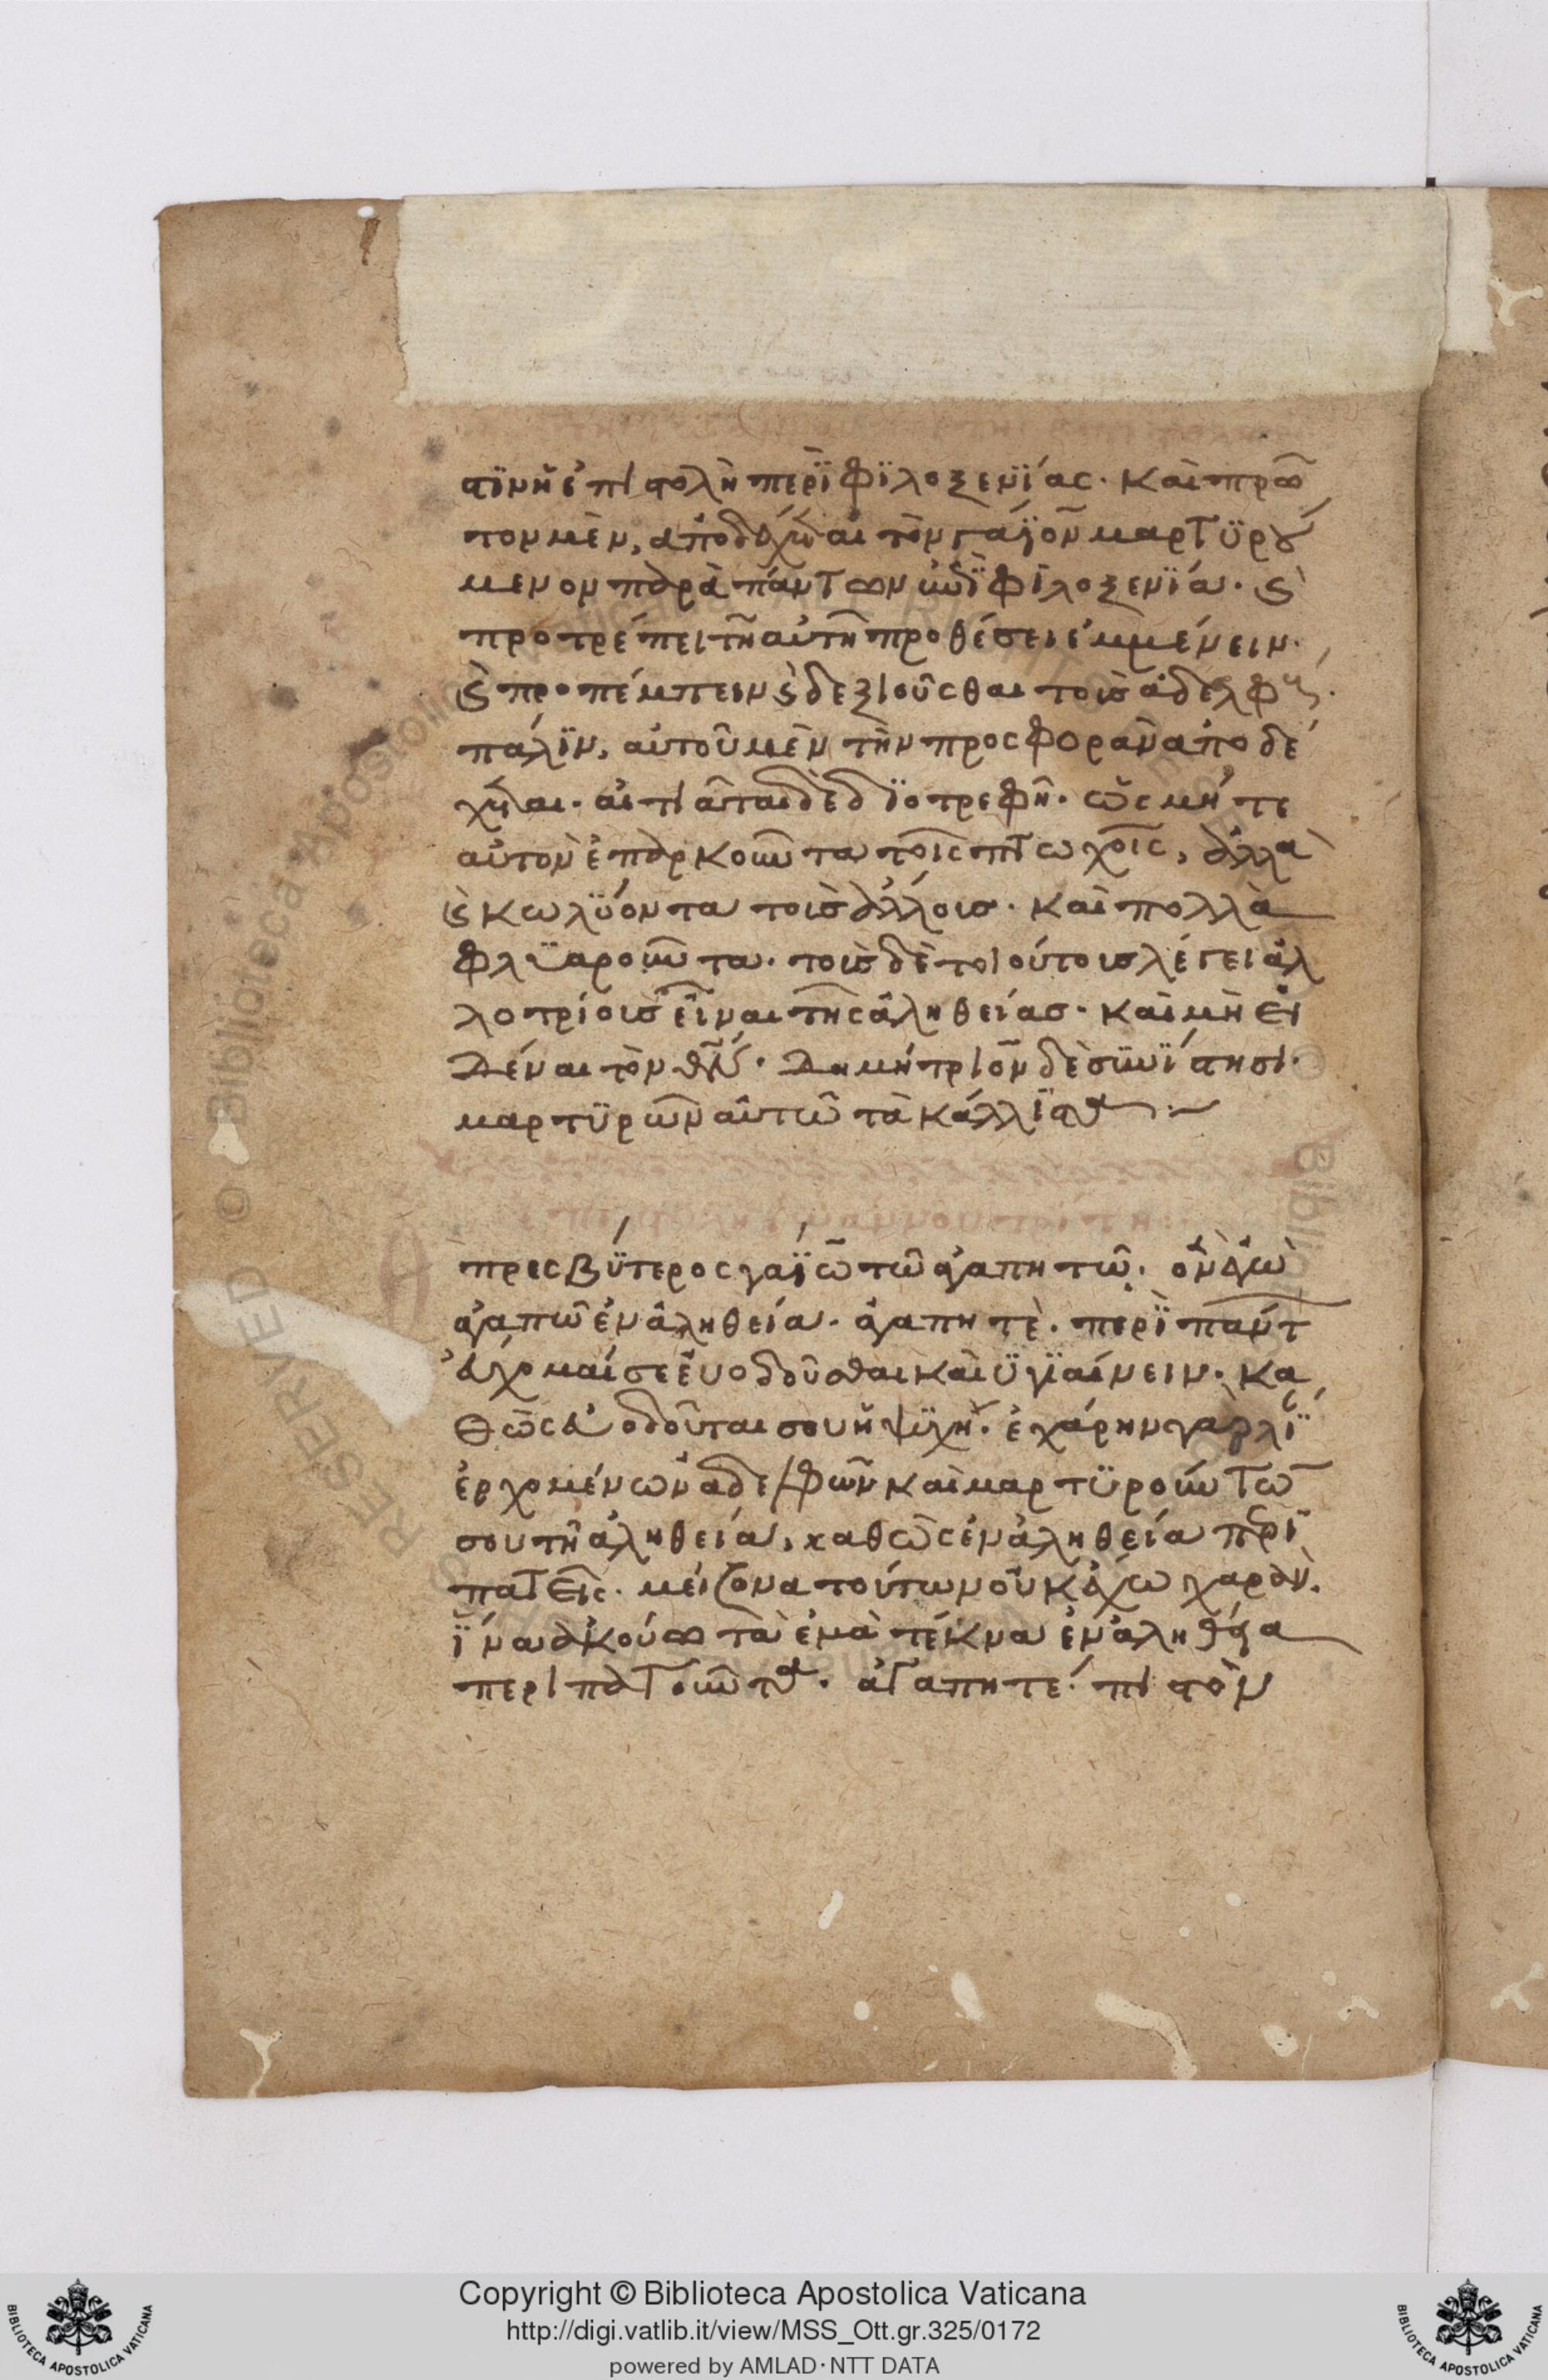 στϊν ἡ ἐπιστολὴ περῒ φϊλοξενϊίας. καὶ πρῶ
τον μὲν, ἀποδέχεται τὸν γάϊον μαρτϋρού
μενον παρὰ πάντων ἐπῒ φϊλοξενϊία. ϛ
προτρέπει τῆ αὐτῆ προθέσει ἐμμένειν.
ϛ προπέμπειν ϛ δεξιοῦσθαι τοὺς ἀδελφούς.
πάλϊν, αὐτοῦ μὲν τὴν προσφορὰν ἀποδέ
χεται. αἰτιᾶται δὲ δϊοτρεφῆ. ὡς μήτε
αὐτὸν ἐπαρκοῦντα τοῖς πτωχοῖς, ἀλλὰ
ϛ κωλϋόντα τοὺς ἄλλους. καὶ πολλὰ
φλϋαροῦντα. τοὺς δὲ τοιούτους λέγει ἀλ
λοτρίους εἶναι τῆς ἀληθείας. καὶ μὴ εἰ
δέναι τὸν θν. δημήτριον δὲ σϋνϊίστησι.
μαρτϋρῶν αὐτῶ τὰ κάλλϊστα
πρεσβϋτερος γαϊῶ τῶ ἀγαπητῶ. ὃν ἐγὼ
ἀγαπῶ ἐν ἀληθεία. ἀγαπητὲ. περῒ πάντ
εὔχομαί σε εὐοδοῦσθαι καὶ ϋγϊαίνειν. κα
θὼς εὐοδοῦταί σου ἡ ψϋχή. ἐχάρην γὰρ λΐ
ἐρχομένων ἀδελφῶν καὶ μαρτϋρούντω
σου τῆ ἀληθεία, καθὼς ἐν ἀληθεία πρι
πατεῖς. μείζονα τούτων οὐκ ἔχω χαρὰν.
ϊνα ἀκούω τὰ ἐμὰ τέκνα ἐν ἀληθεία
περιπατοῦντα. ἀγαπητέ. πιστὸν
Copyright © Biblioteca Apostolica Vaticana
http://digi.vatlib.it/view/MSS_Ott.gr.325/0172
powered by AMLAD·NTT DATA